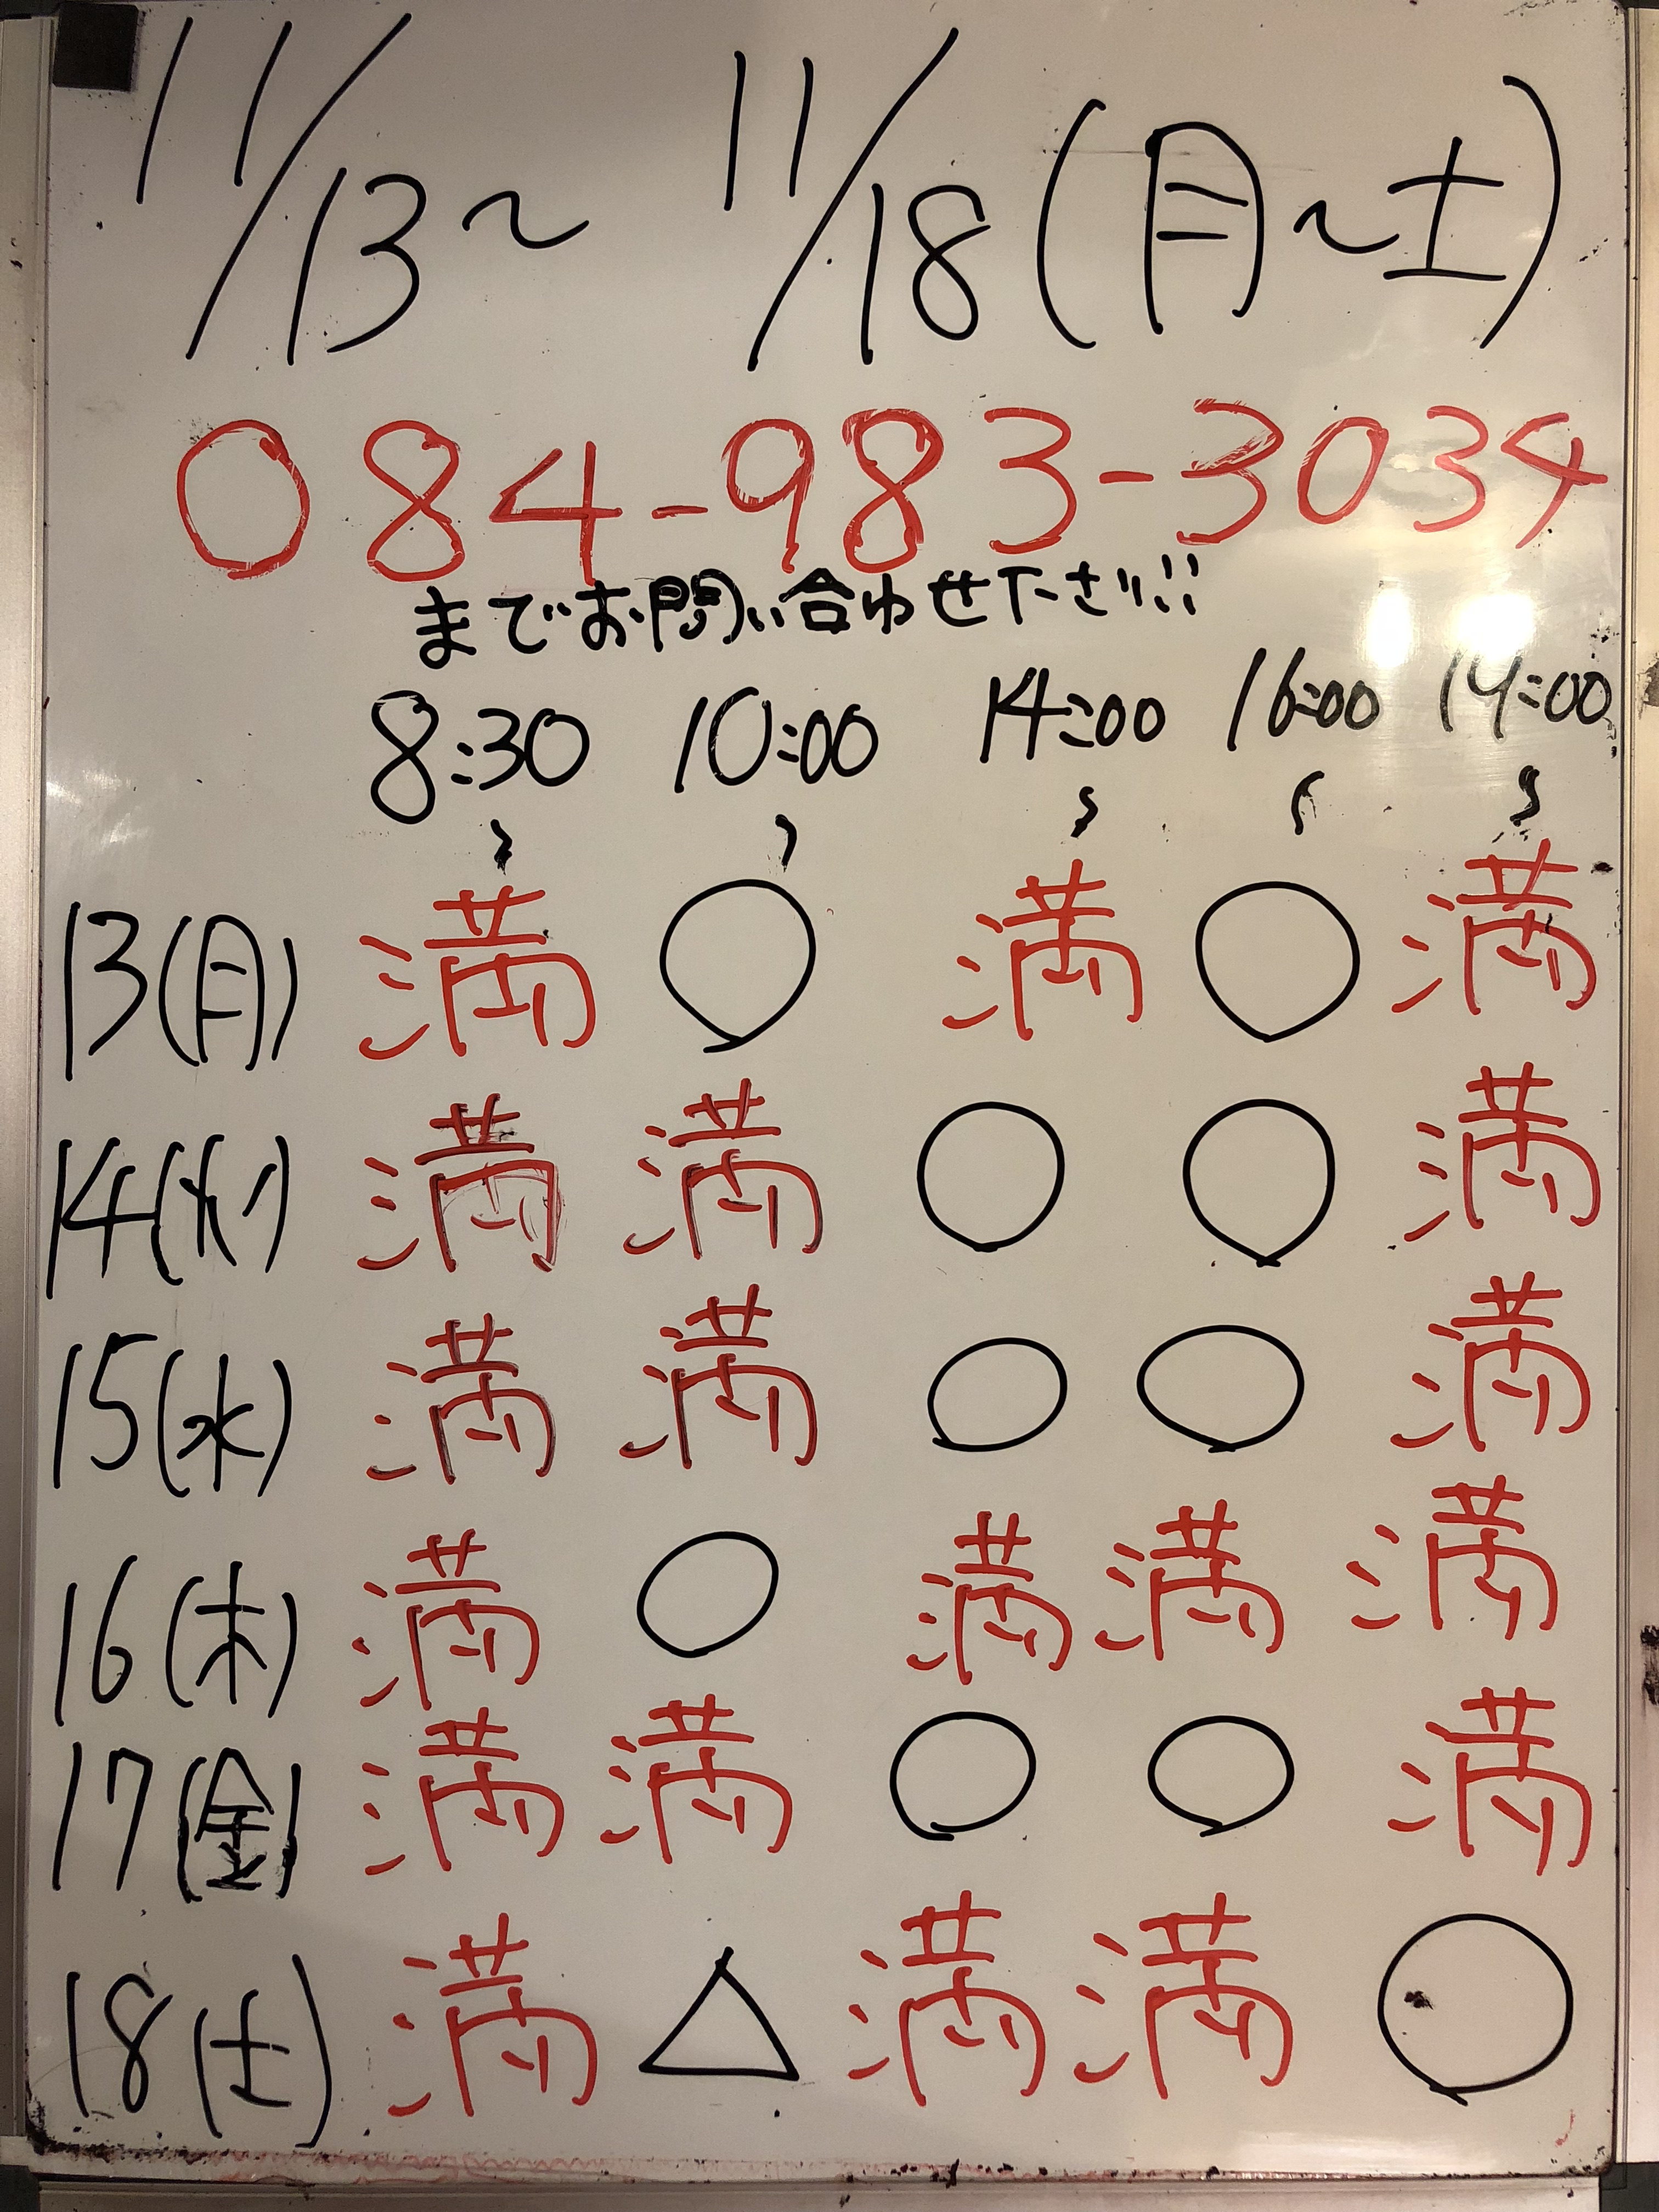 11/13〜 11/18(月〜土)
084-983-3034
までお問い合わせ下さい!!
8:30〜 10:00〜 14:00〜 16:00〜 19:00〜
13(月) 満 ○ 満 ○ 満
14(火) 満 満 ○ ○ 満
15(水) 満 満 ○ ○ 満
16(木) 満 ○ 満 満 満
17(金) 満 満 ○ ○ 満
18(土) 満 △ 満 満 ○